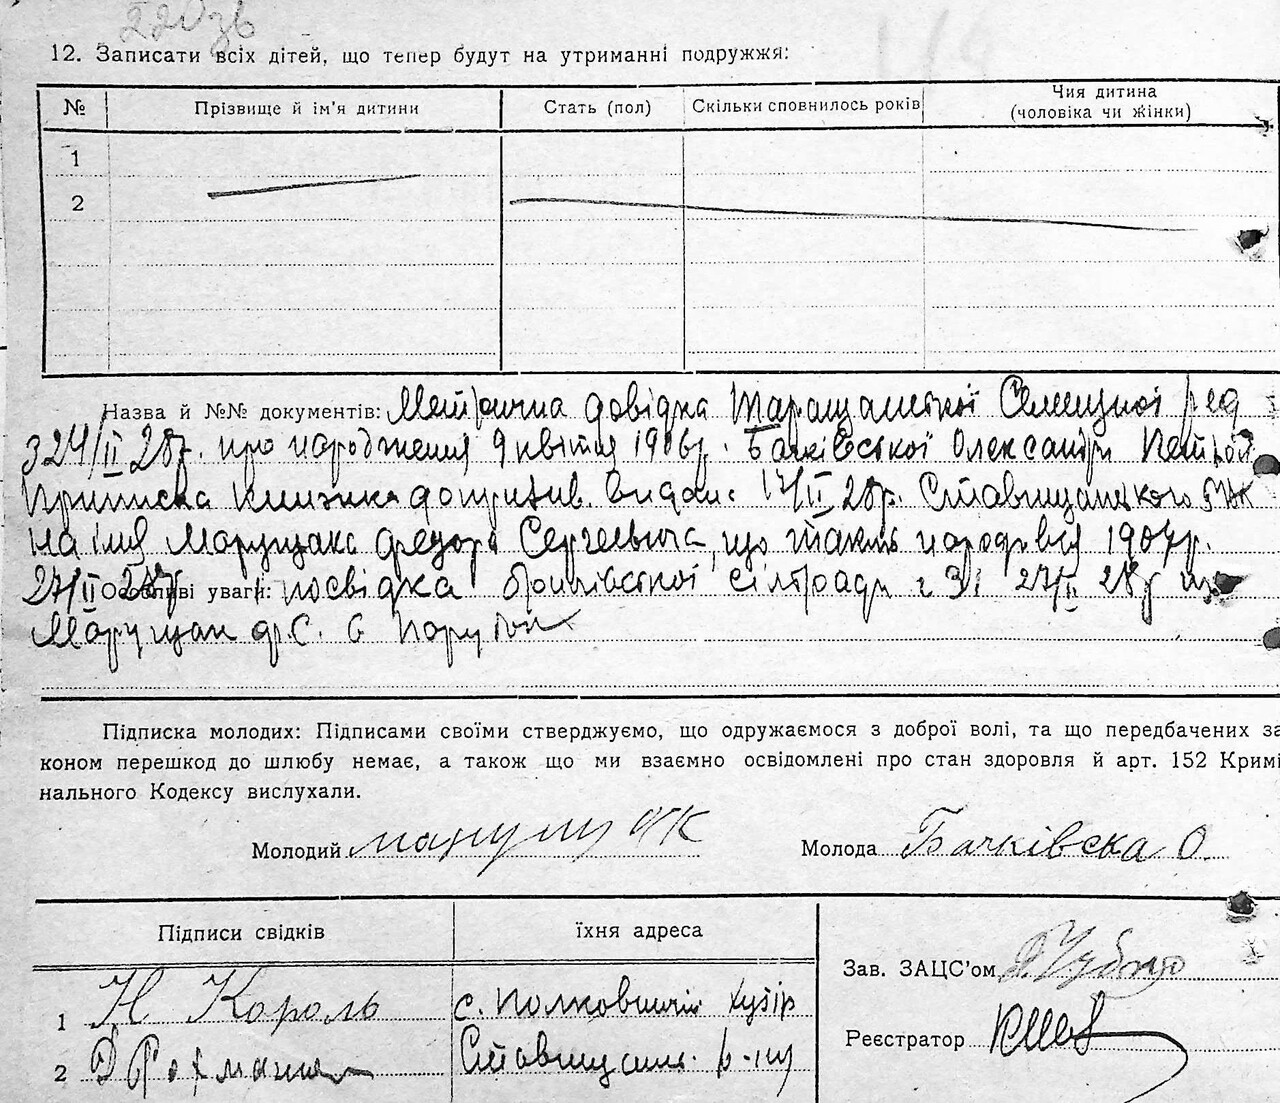 220зв
12. Записати всіх дітей, що тепер будут на утриманні подружжя:
№ Прізвище й ім'я дитини Стать (пол) Скільки сповнилось років Чия дитина (чоловіка чи жінки)
1
2
Назва й №№ документів: Метрична довідка Таращанської Селищної ред
324/II 28р. про народження 9 квітня 1906р. Бачківської Олександри
Приписна книжка допризив. видана 17/II 28р. Ставищанського
на імя Марущака Федора Сергеевича, що також народився 1904р.
27/II 28р Особливі уваги: посвідка сільради 27/II 28р
Марущак Ф.С.
Підписка молодих: Підписами своїми стверджуємо, що одружаємося з доброї волі, та що передбачених за
коном перешкод до шлюбу немає, а також що ми взаємно освідомлені про стан здоровля й арт. 152 Кримі
нального Кодексу вислухали.
Молодий Молода Бачківска О.
Підписи свідків їхня адреса
Зав. ЗАЦС'ом
1 Н Король с. хутір
Реєстратор
2 Ставищань. р-ну